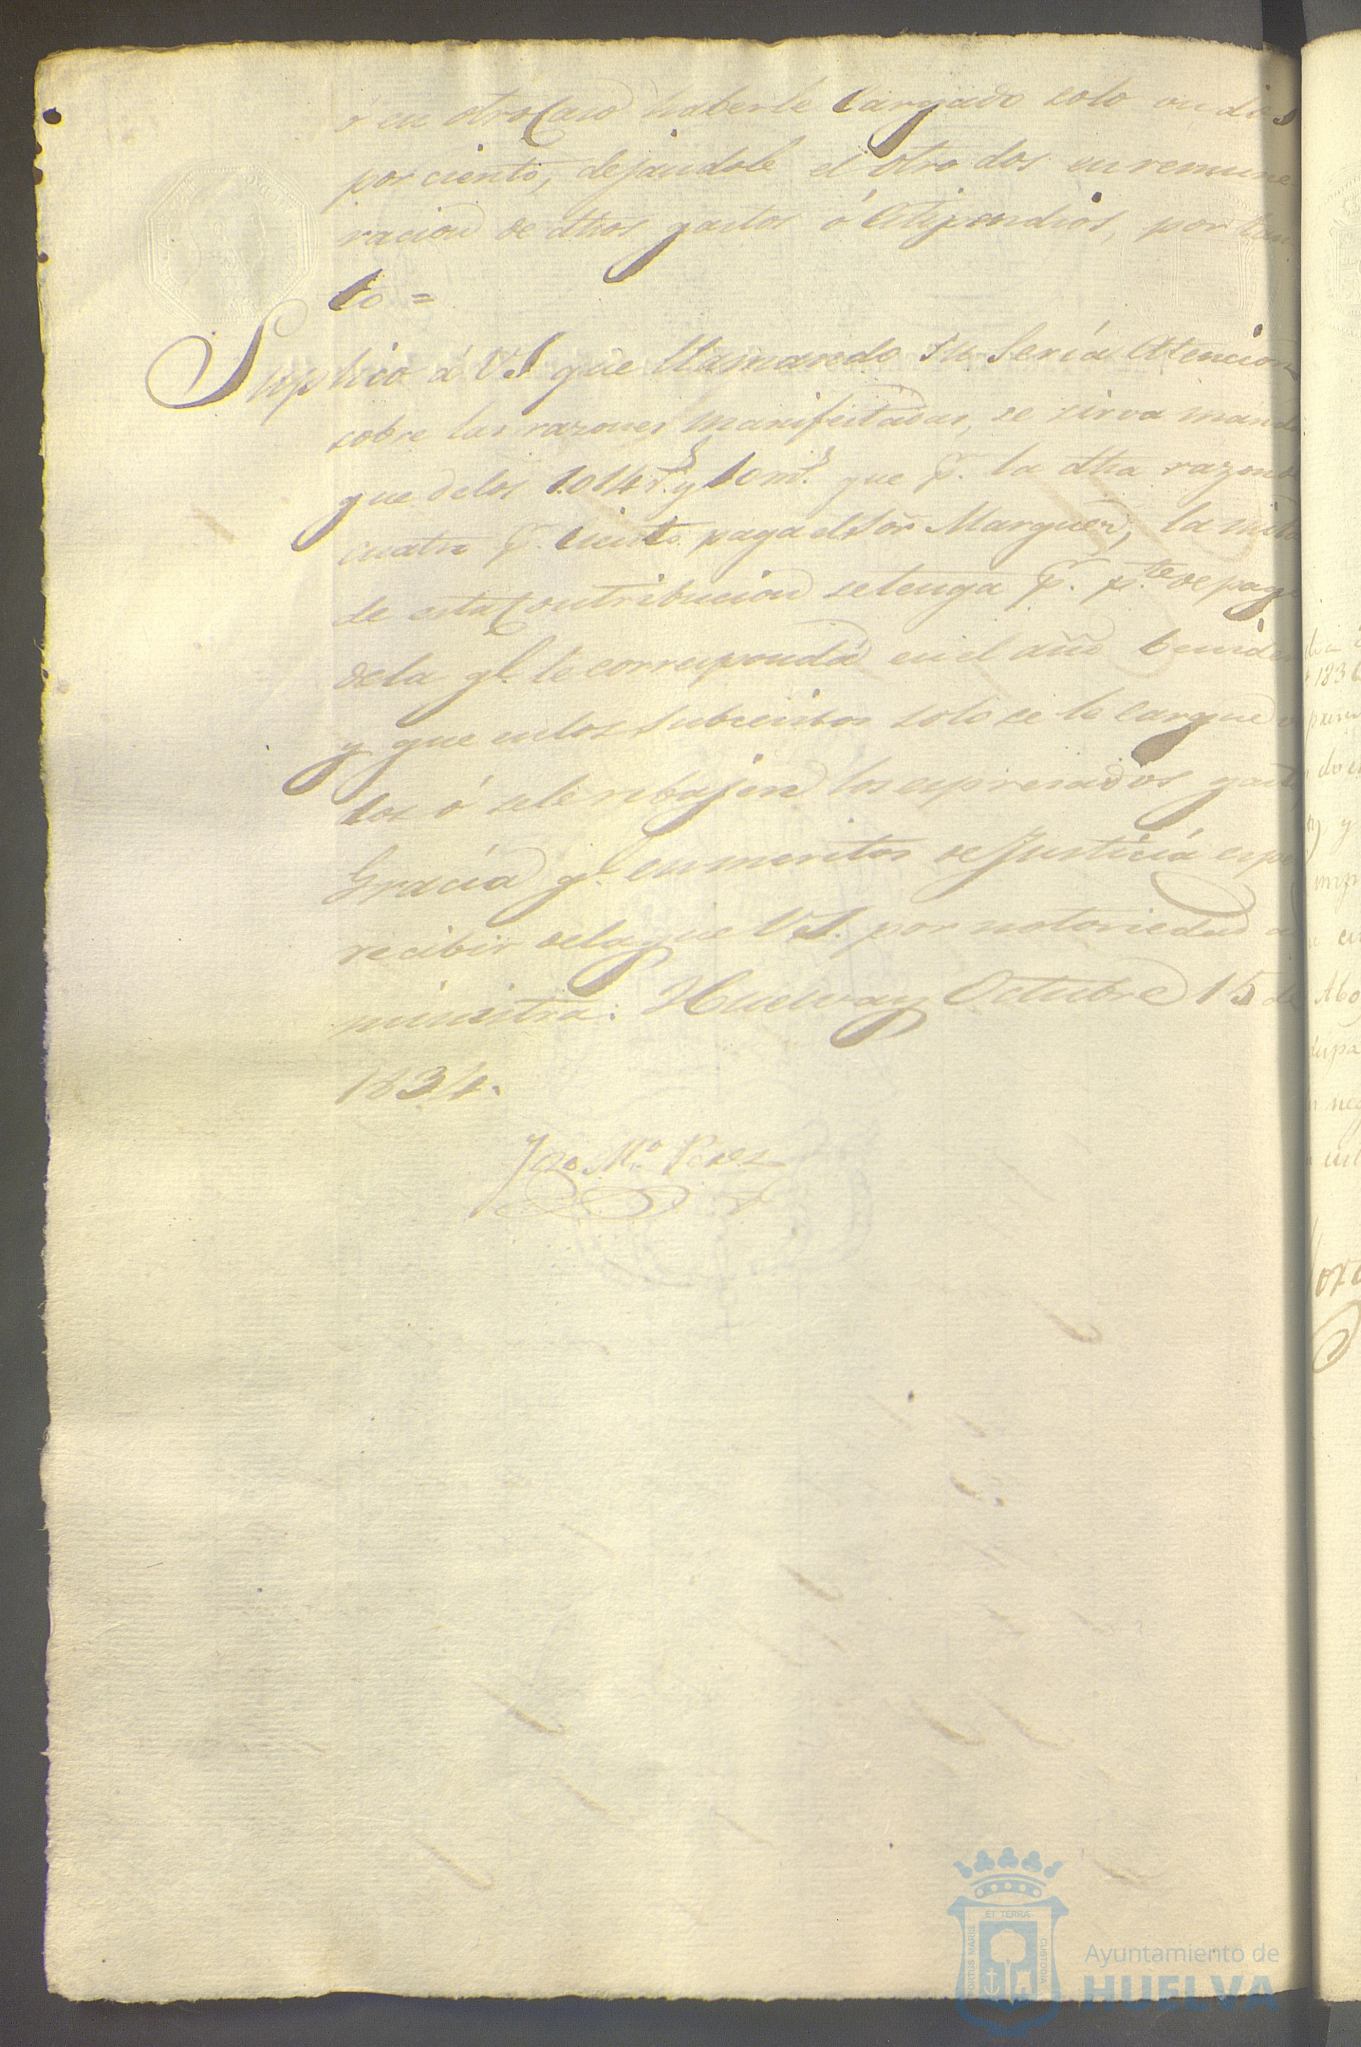 ó en otro Caso haberle Cargado solo un dos
por ciento, dejandole el otro dos en remune
racion de dhos gastos ó Estipendios, por tan
to =
Suplico á VS que llamando su Seria Atencion
sobre las razones manifestadas, se sirva manda
que delos 1.014 r.s y 10 m.s que p.r la dha razon de
cuatro p.r Ciento paga el Sor Marques, la mita
de esta Contribucion se tenga p.r p.te de pag
dela q.e le corresponda en el año benider
y que en los Subcesivos solo se le Cargue
los ó se le rebajen los expresados gast
Gracia q.e en meritos de Justicia espe
recibir dela que VS. por notoriedad a
ministra. Huelva y Octubre 15 de
1834.
Jose M.a Perez
1836
ET TERRÆ
PORTUS MARIS
CUSTODIA
Ayuntamiento de
HUELVA